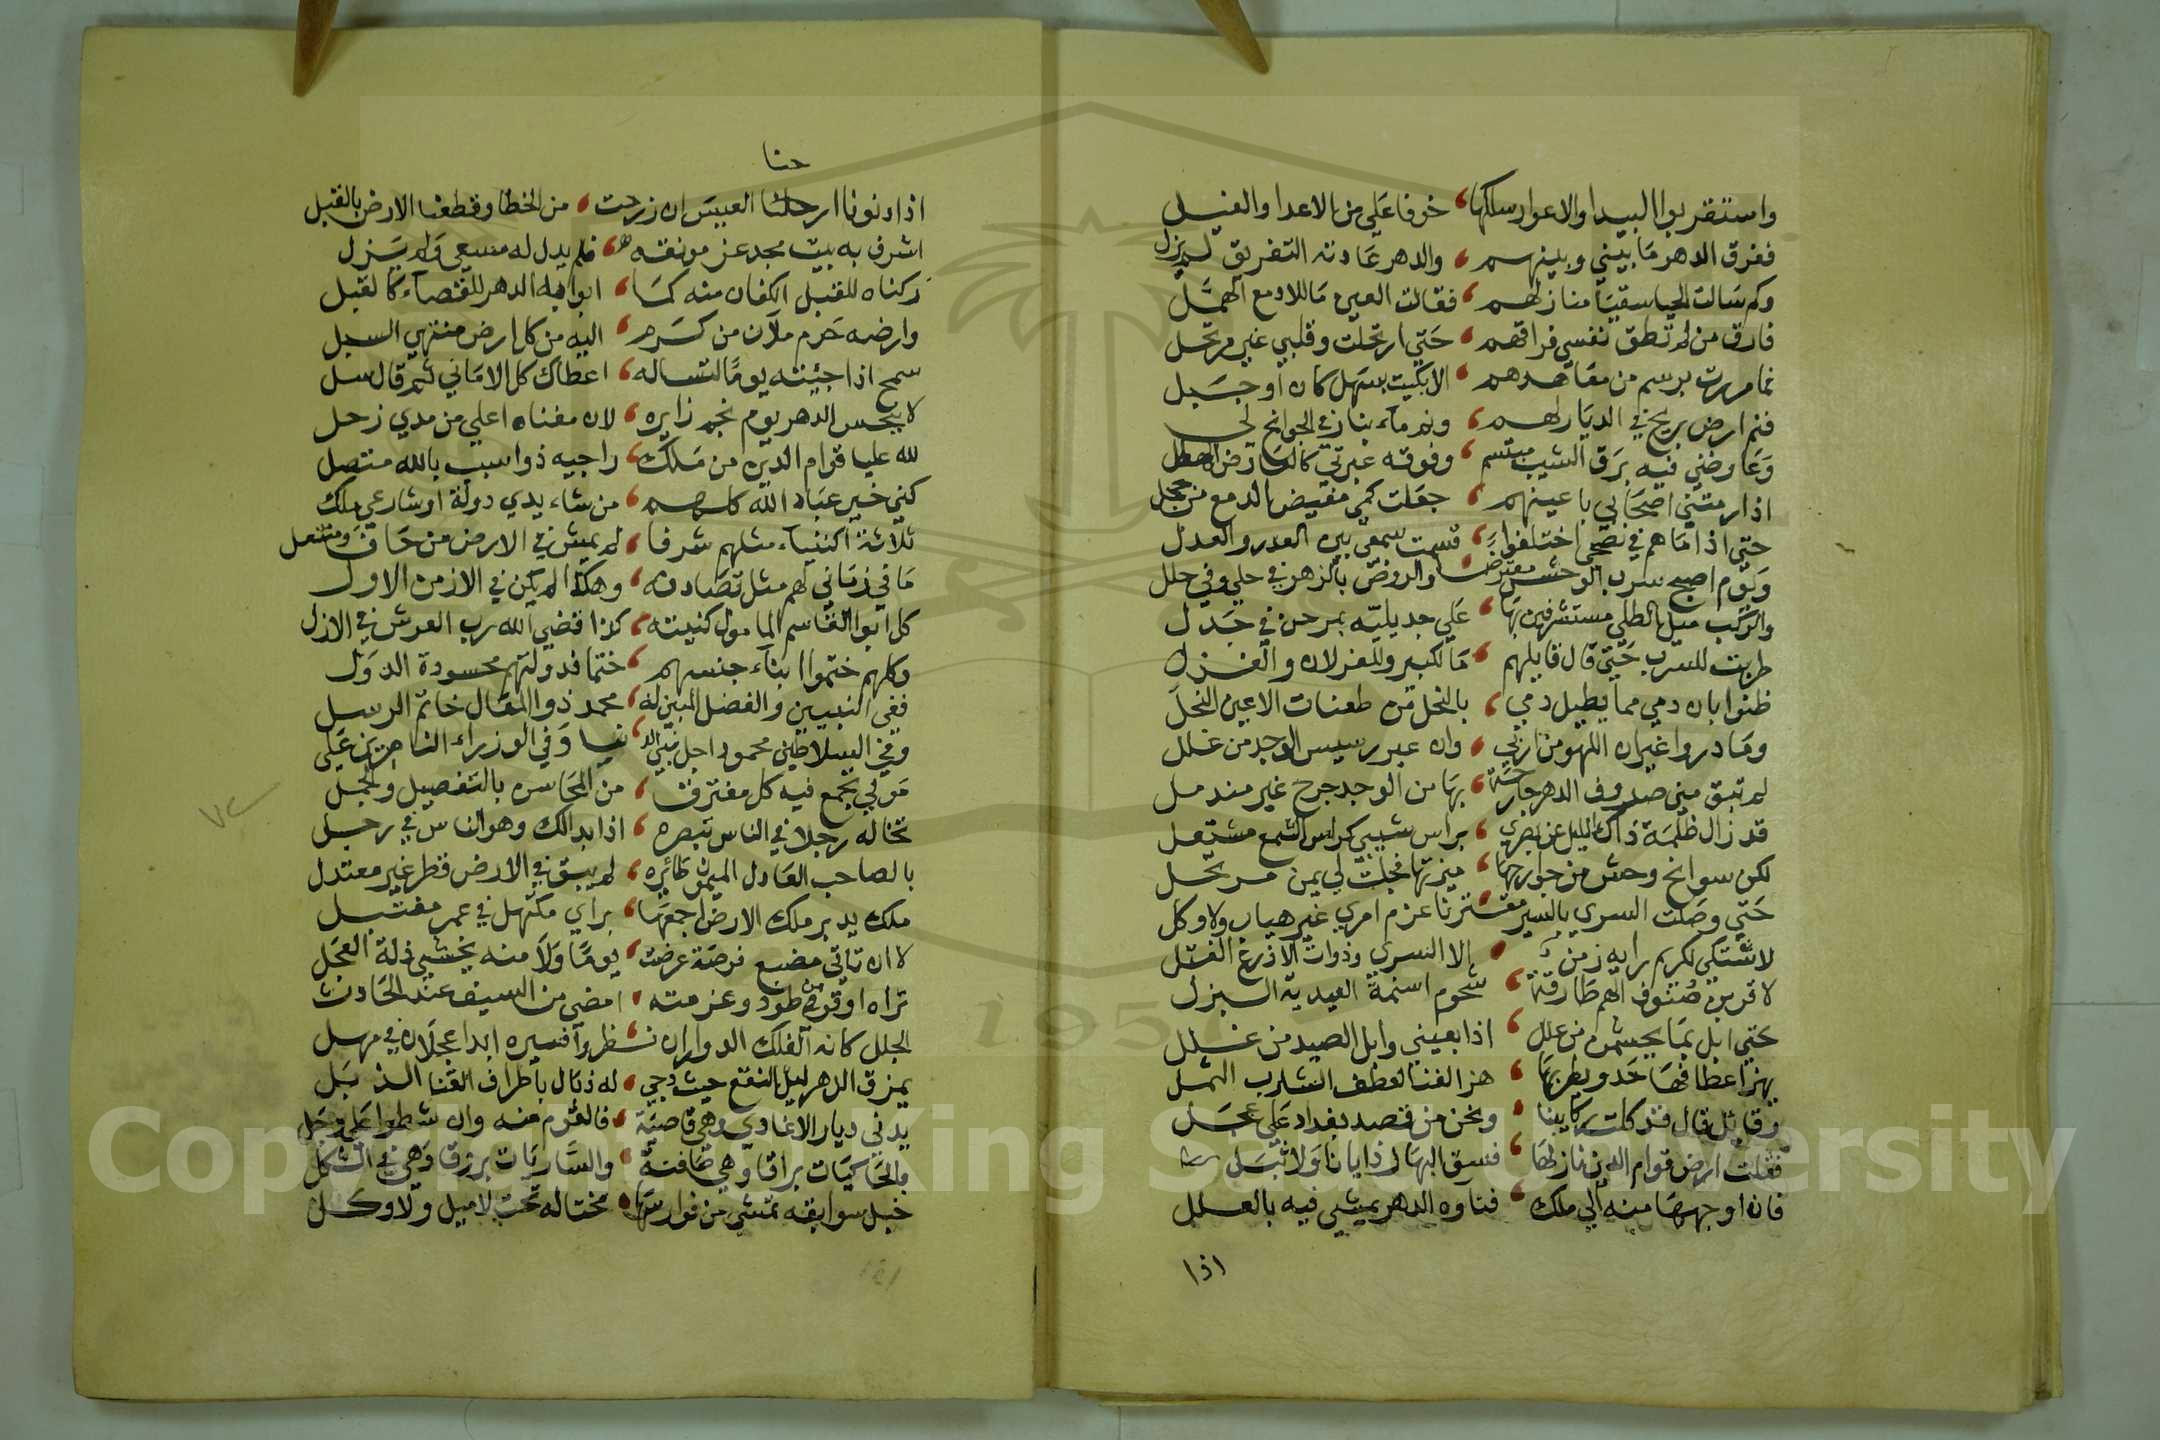 واستقربوا البيدا والاعوار سالكها خوفا علي من الاعدا والغيل
ففرق الدهر ما بيني وبينهم والدهر عادته التفريق لم يزل
وكم سالت الحيا سقيا منازلهم فقالت العين ماللادمع الهمل
فارق من لم تطق نفسي فراقهم حتي ارتحلت وقلبي غير مرتحل
فما مررت برسم من معاهدهم الا بكيت بسهل كان او جبل
فنم ارض بريح في الديار لهم ونم ماء بنار في الجوانح لي
وعارضني فيه برق الشيب مبتسم وفوقه عبرتي كالعارض الهطل
اذا رمتني اصحابي باعينهم جعلت كمي مفيض الدمع من خجل
حتي اذا ما هم في نصحي اختلفوا قسمت سمعي بين العذر والعذل
ويوم اصبح سرب الوحش معترضا والروض بالزهر في حلي وفي حلل
والركب ميل الطلي مستشرفين بها علي جديلية يمرحن في جدل
طربت للسرب حتي قال قايلهم ما لكبير وللغزلان والغزل
ظنوا بان دمي مما يطيل دمي بالنجل من طعنات الاعين النجل
وما دروا غير ان اللهو من اربي وان عبر رسيس الوجد من علل
لم تبق مني صروف الدهر جارحة بها من الوجد جرح غير مندمل
قد زال ظلمة ذاك الليل عن بصري براس شيبي كراس الشمع مشتعل
لكن سوانح وحش من جوارحها ميزتها فجلت لي يمن مرتحل
حتي وصلت السري بالسير مقترنا عزم امري غير هياب ولا وكل
لا تشتكي لكريم رايه زمن الا السري وذوات الاذرع الفتل
لا قرين ضيوف الهم طارقة شحوم اسنمة العيدية البزل
حتي ابل بما يجشمن من علل اذا بعيني وابل الصيد من غلل
يهز اعطافها حدو يطربها هز الغنا لعطف الشارب الثمل
وقائل قال قد كلت ركابينا ونحن من قصد بغداد علي عجل
فقلت ارض قوام الدين نازلها فسق اليها ركايانا ولا تبل
فان اوجهها منه الي ملك فناوه الدهر يمشي فيه بالعلل
اذا
حنا
اذا دنونا ارحلنا العيس ان زرحت من الخطا وقطعنا الارض بالقبل
اشرف به بيت مجد عز مونقه فلم يدل له مسعي ولم يزل
ركناه للقبل الكفان منه كما ابوابه الدهر للقصاء كالقبل
وارضه حرم ملآن من كرم اليه من كل ارض منتهي السبل
سمح اذا جيئته يوما لتساله اعطاك كل الاماني ثم قال سل
لا يبحس الدهر يوم نجم زايره لان مغناه اعلي من مدي زحل
لله عليا قوام الدين من ملك راجيه ذو سبب بالله متصل
كني خير عباد الله كلهم من شاء يدي دولة او شارعي ملك
ثلاثة اكنياء مثلهم شرفا لم يمش في الارض من حاف ومنتعل
ما في زماني لهم مثل تصادفه وهكذا لم يكن في الازمن الاول
كل ابوا القاسم المامول كنيته كذا قضي الله رب العرش في الازل
وكلهم ختموا ابناء جنسهم ختما فدولتهم محسودة الدول
ففي النبيين والفضل المبين له محمد ذو المقال خاتم الرسل
وفي السلاطين محمود اجل بني الدنيا وفي الوزراء الناهرين علي
مولي تجمع فيه كل مفترق من المحاسن بالتفصيل والجمل
تخاله رجلا في الناس تبصره اذا بدا لك وهو الناس في رجل
بالصاحب العادل الميمون طائره لم يبق في الارض قطر غير معتدل
ملك يدبر ملك الارض اجمعها براي مكتهل في عمر مقتبل
لا ان تاتي مضيع فرصة عرضت يوما ولا منه يخشي زلة العجل
تراه اوقر من طود وعزمته امضي من السيف عند الحادث
الجلل كانه الفلك الدوار ان نظروا فسيره ابدا عجلان في مهل
يمزق الدهر ليل النقع حيث دجي له ذبال باطراف القنا الذبل
يدني ديار الاعادي وهي قاصية فالقوم منه وان شطوا علي وجل
والحاكيات براقا وهي صافنة والساريات بروقا وهي في الشكل
خيل سوابقه تمشي من فوارسها مختالة تحت لا ميل ولا وكل
Copyright © King Saud University
1957